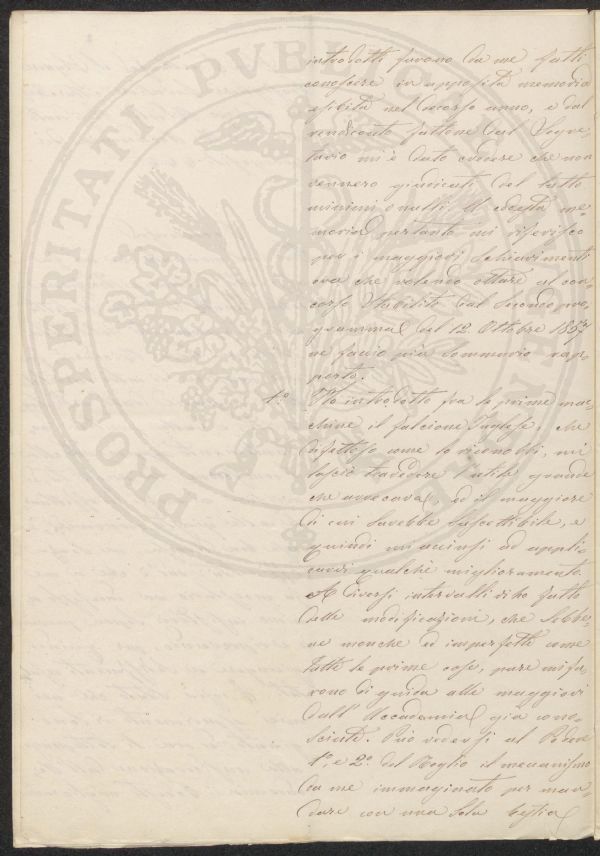 introdotti furono da me fatti
conoscere in apposita memoria
esibita nel decorso anno, e dal
rendiconto fattone dal Segre,
tario mi è dato credere che non
vennero giudicati del tutto
minimi o nulli. A codesta me,
moria pertanto mi riferisco
per i maggiori schiarimenti
ora che volendo ottare al con,
corso stabilito dal secondo pro,
gramma del 12 Ottobre 1857
ne faccio più sommario rap,
porto.
1.o Ho introdotto fra le prime mac,
chine il falcione Inglese, che
difettoso come lo riconobbi, mi
lasciò travedere l'utile grande
che arrecava, ed il maggiore
di cui sarebbe suscettibile, e
quindi mi accinsi ad appli,
carvi qualche miglioramento
A diversi intervalli vi ho fatto
delle modificazioni, che sebbe,
ne monche ed imperfette come
tutte le prime cose, pure mi fu,
rono di guida alle maggiori
dall'Accademia già cono,
sciute. Può vedersi al Podere
1.o e 2.o del Meglio il meccanismo
da me immaginato per man,
dare con una sola bestia
PROSPERITATI PVBLICAE